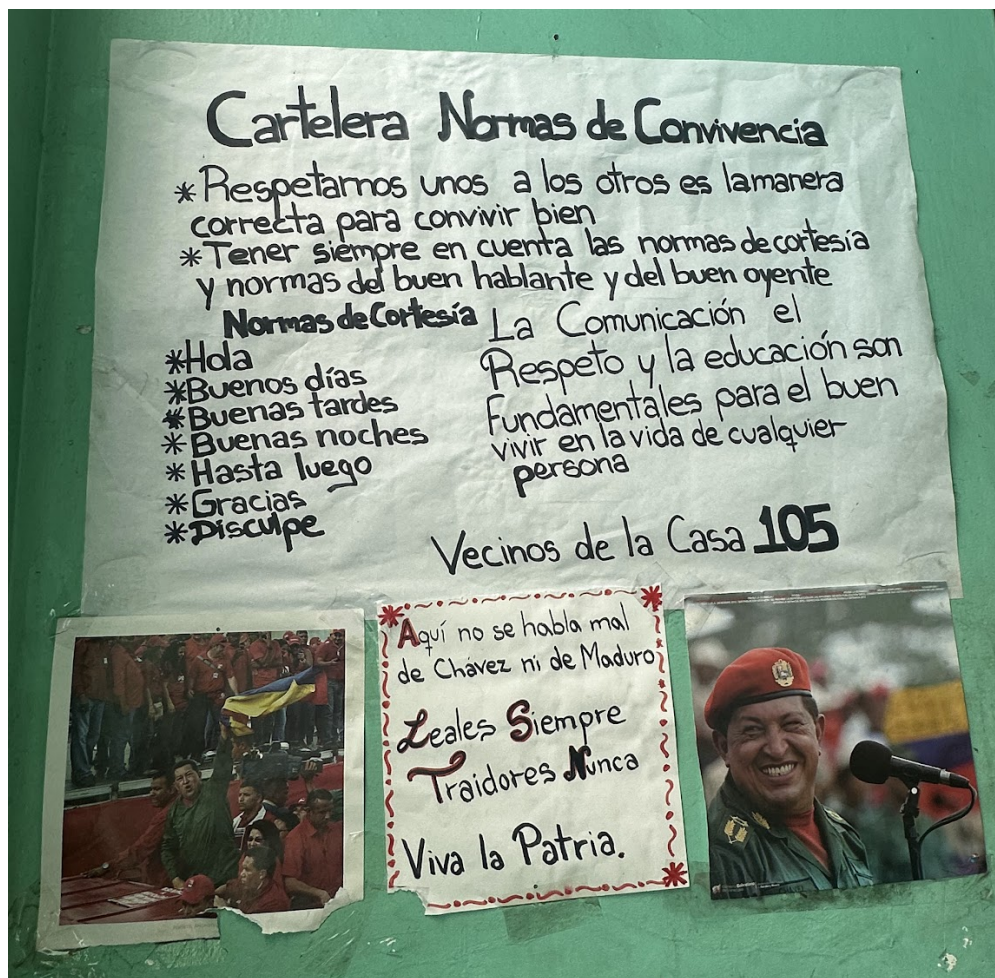 Cartelera Normas de Convivencia
*Respetarnos unos a los otros es lamanera
correcta para convivir bien
*Tener siempre en cuenta las normas de cortesía
y normas del buen hablante y del buen oyente
Normas de Cortesía
*Hola
*Buenos días
*Buenas tardes
*Buenas noches
*Hasta luego
*Gracias
*Disculpe
La Comunicación el
Respeto y la educación son
Fundamentales para el buen
vivir en la vida de cualquier
persona
Vecinos de la Casa 105
Aquí no se habla mal
de Chávez ni de Maduro
Leales Siempre
Traidores Nunca
Viva la Patria.